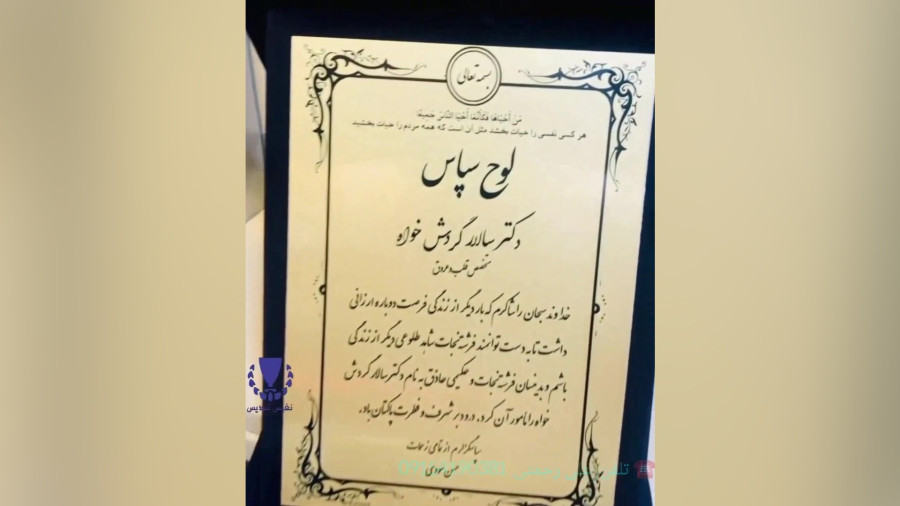 بسمه تعالی
مَنْ أَحْیَاهَا فَکَأَنَّمَا أَحْیَا النَّاسَ جَمِیعًا
هر کسی نفسی را حیات بخشد مثل آن است که همه مردم را حیات بخشید
لوح سپاس
دکتر سالار گردش خواه
متخصص قلب و عروق
خداوند سبحان را شاکرم که بار دیگر از زندگی فرصت دوباره ارزانی
داشت تا به دست توانمند فرشته نجات شاهد طلوعی دیگر از زندگی
باشم و بدینسان فرشته نجات و حکیمی حاذق به نام دکتر سالار گردش
خواه را مامور آن کرد. درود بر شرف و فطرت پاکتان باد.
سپاسگزارم از تمامی زحمات
نفیس تندیس